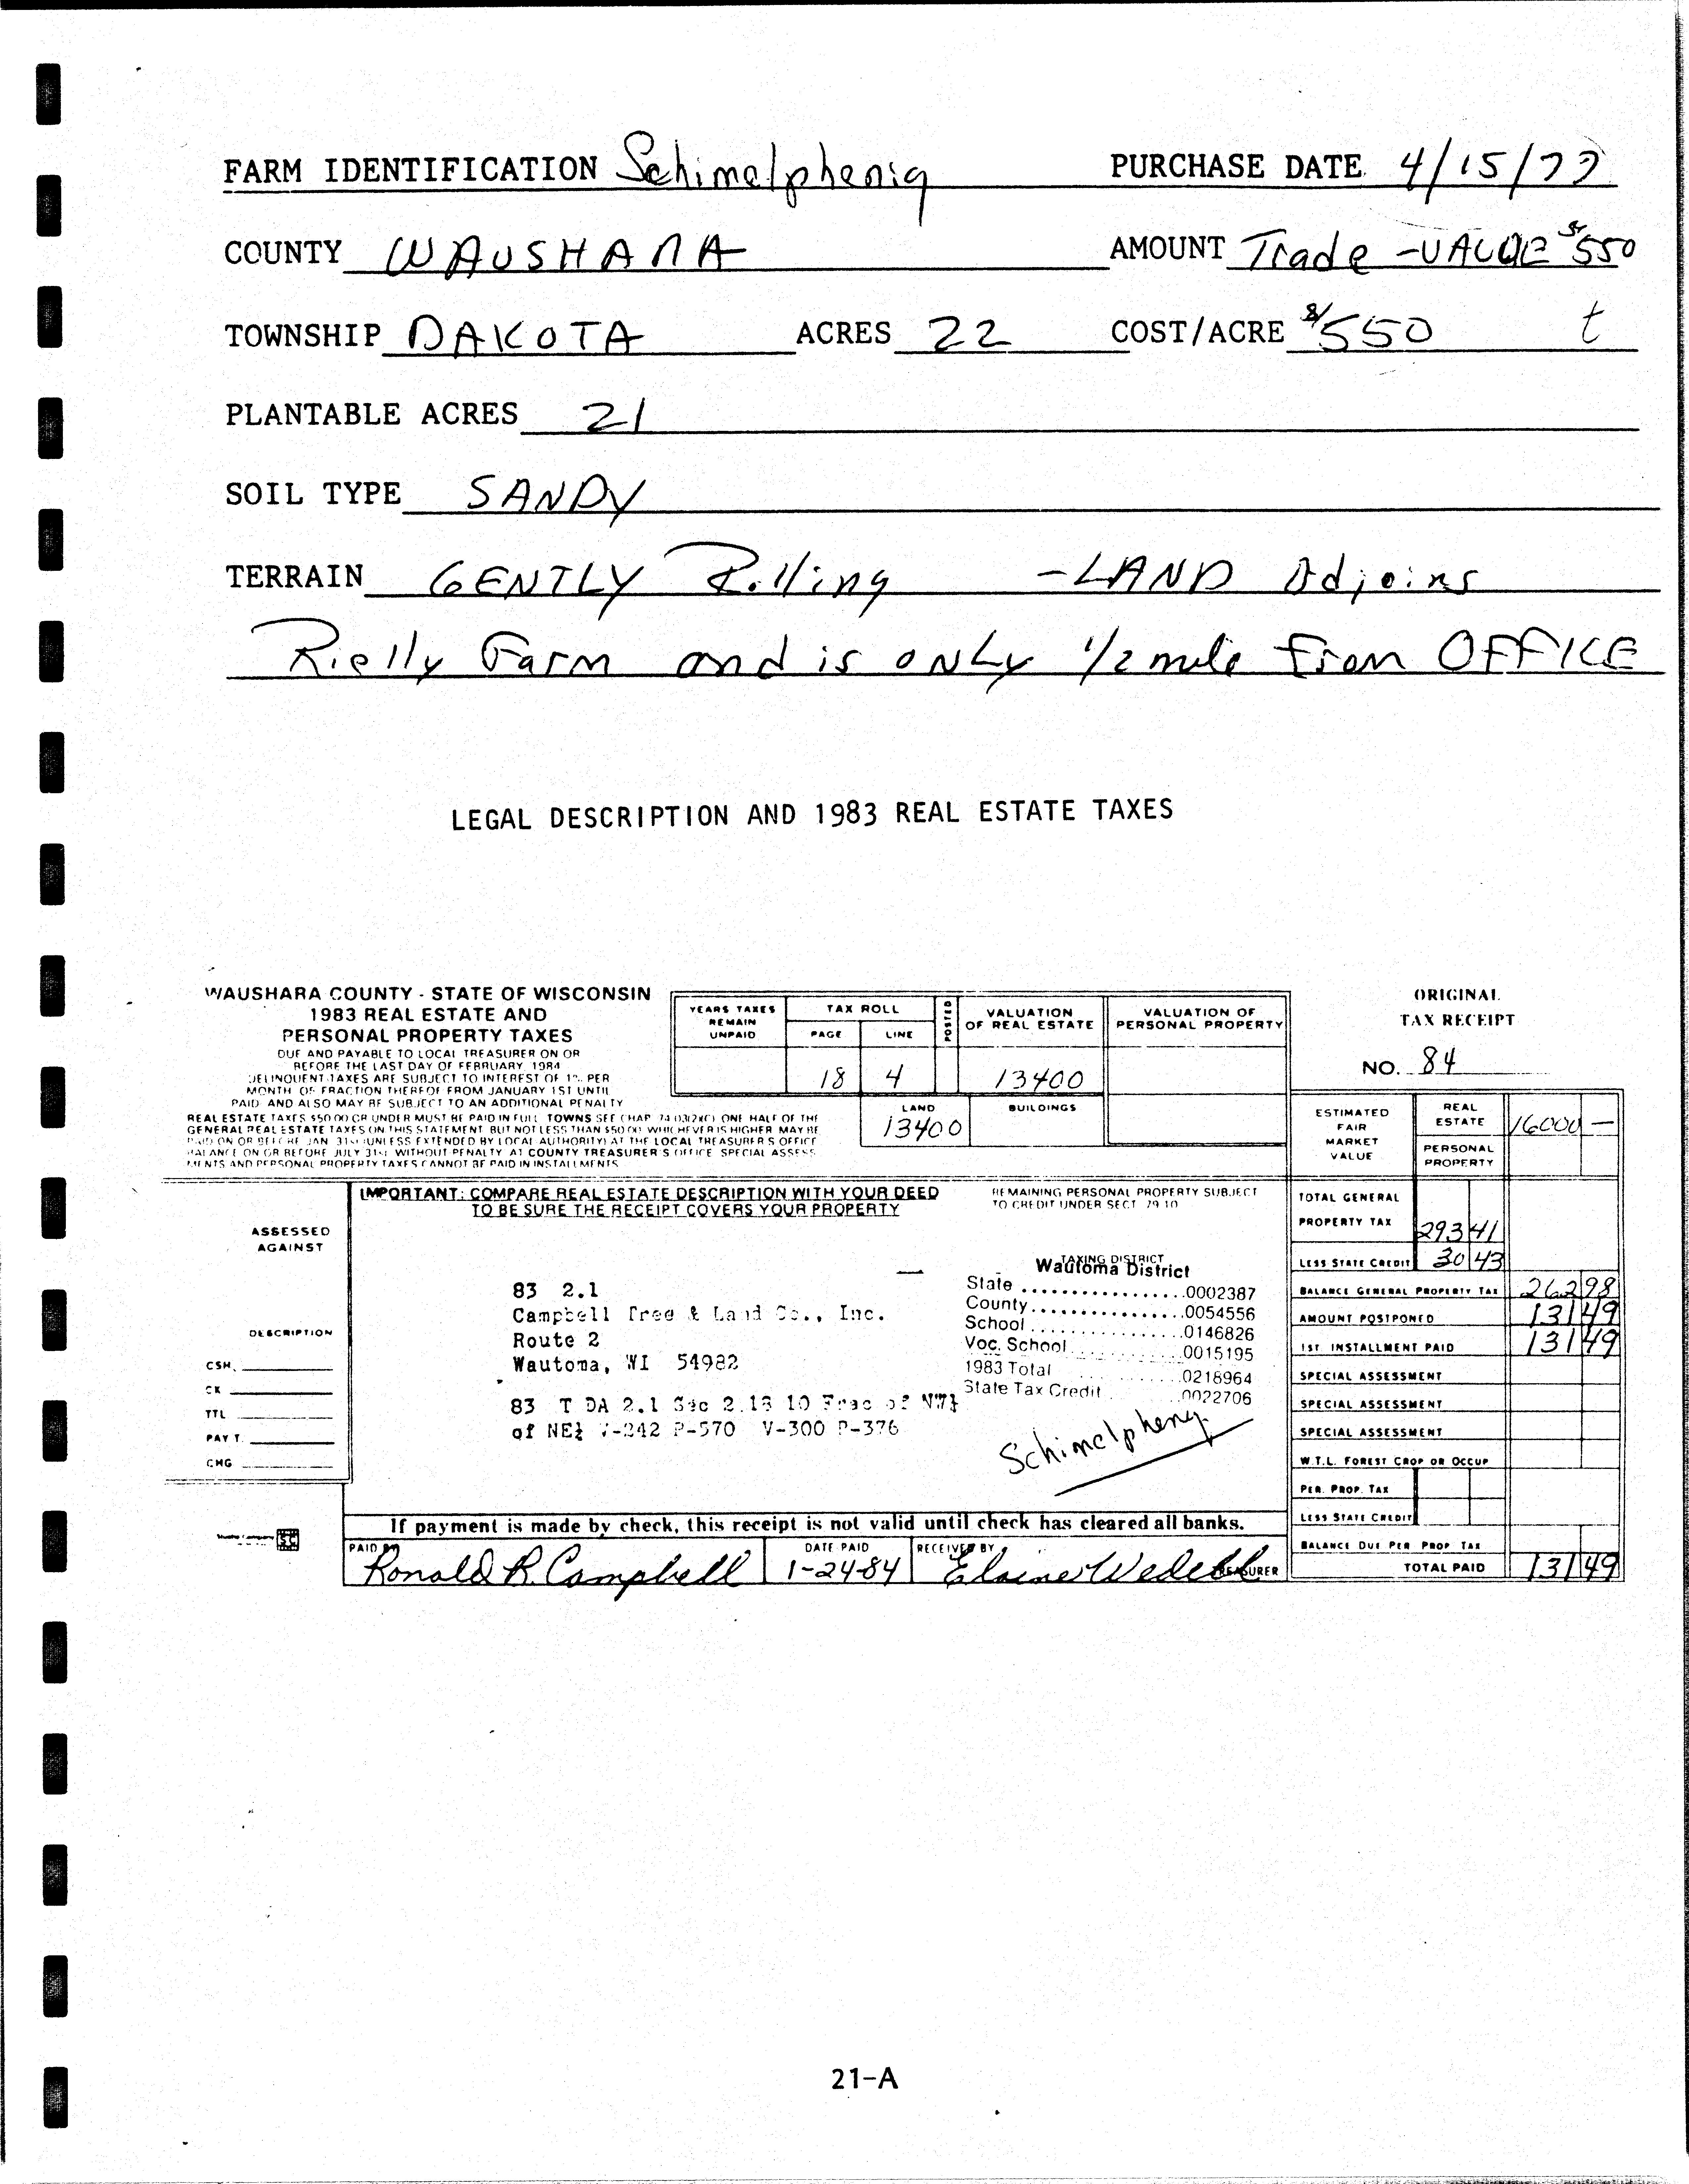 FARM IDENTIFICATION Schimelphenig PURCHASE DATE 4/15/77
COUNTY WAUSHARA AMOUNT Trade -VALUE $550
TOWNSHIP DAKOTA ACRES 22 COST/ACRE $550 t
PLANTABLE ACRES 21
SOIL TYPE SANDY
TERRAIN GENTLY Rolling -LAND Adjoins
Rielly Farm and is ONLY 1/2 mile From OFFICE
LEGAL DESCRIPTION AND 1983 REAL ESTATE TAXES
WAUSHARA COUNTY - STATE OF WISCONSIN
1983 REAL ESTATE AND
PERSONAL PROPERTY TAXES
DUE AND PAYABLE TO LOCAL TREASURER ON OR
BEFORE THE LAST DAY OF FEBRUARY, 1984
DELINQUENT TAXES ARE SUBJECT TO INTEREST OF 1% PER
MONTH OR FRACTION THEREOF FROM JANUARY 1ST UNTIL
PAID AND ALSO MAY BE SUBJECT TO AN ADDITIONAL PENALTY
REAL ESTATE TAXES $50.00 OR UNDER MUST BE PAID IN FULL TOWNS SEE CHAP. ONE HALF OF THE
GENERAL REAL ESTATE TAXES ON THIS STATEMENT BUT NOT LESS THAN $50.00 WHICHEVER IS HIGHER MAY BE
PAID ON OR BEFORE JAN 31st (UNLESS EXTENDED BY LOCAL AUTHORITY) AT THE LOCAL TREASURER'S OFFICE
BALANCE ON OR BEFORE JULY 31st WITHOUT PENALTY AT COUNTY TREASURER'S OFFICE SPECIAL ASSESS-
MENTS AND PERSONAL PROPERTY TAXES CANNOT BE PAID IN INSTALLMENTS
YEARS TAXES REMAIN UNPAID
TAX ROLL
PAGE LINE
18 4
POSTED
VALUATION OF REAL ESTATE
13400
VALUATION OF PERSONAL PROPERTY
LAND
13400
BUILDINGS
ORIGINAL
TAX RECEIPT
NO. 84
ESTIMATED FAIR MARKET VALUE
REAL ESTATE 16000 —
PERSONAL PROPERTY
ASSESSED AGAINST
DESCRIPTION
CSH.
CK
TTL
PAY T.
CHG
IMPORTANT: COMPARE REAL ESTATE DESCRIPTION WITH YOUR DEED
TO BE SURE THE RECEIPT COVERS YOUR PROPERTY
REMAINING PERSONAL PROPERTY SUBJECT
TO CREDIT UNDER SECT. 79.10
83 2.1
Campbell Tree & Land Co., Inc.
Route 2
Wautoma, WI 54982
83 T DA 2.1 Sec 2.18 10 Frac of NW¼
of NE¼ V-242 P-570 V-300 P-376
TAXING DISTRICT
Wautoma District
State .0002387
County .0054556
School .0146826
Voc. School .0015195
1983 Total .0218964
State Tax Credit .0022706
Schimelphenig
TOTAL GENERAL PROPERTY TAX 293 41
LESS STATE CREDIT 30 43
BALANCE GENERAL PROPERTY TAX 262 98
AMOUNT POSTPONED 131 49
1ST INSTALLMENT PAID 131 49
SPECIAL ASSESSMENT
SPECIAL ASSESSMENT
SPECIAL ASSESSMENT
W.T.L. FOREST CROP OR OCCUP
PER. PROP. TAX
LESS STATE CREDIT
BALANCE DUE PER PROP TAX
TOTAL PAID 131 49
If payment is made by check, this receipt is not valid until check has cleared all banks.
PAID BY Ronald R. Campbell DATE PAID 1-24-84 RECEIVED BY Elaine TREASURER
21-A